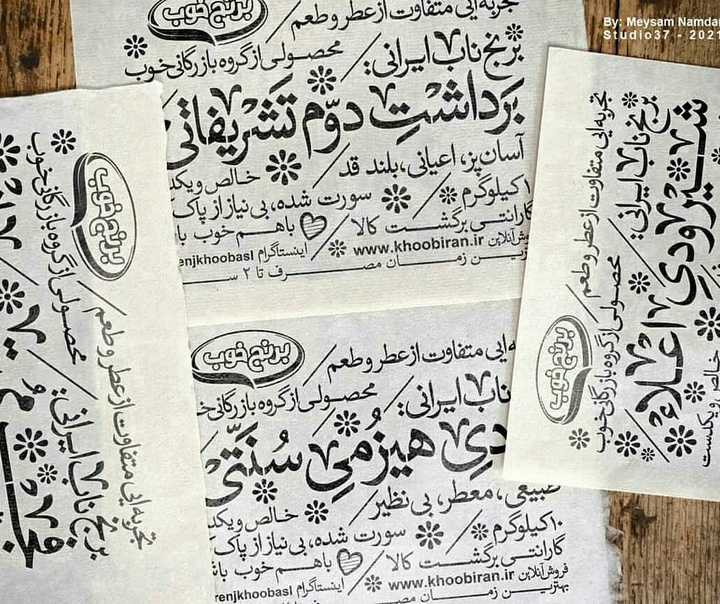 By: Meysam Namdar
Studio37 - 2021
برنج خوب
تجربه‌ایی متفاوت از عطر و طعم
محصولی از گروه بازرگانی خوب
برنج ناب ایرانی:
برداشتِ دوّم تشریفاتی
آسان‌پز، اعیانی، بلند قد
خالص و یکد
۱ کیلوگرم
سورت شده، بی‌نیاز از پاک
گارانتی برگشت کالا
باهم خوب با
وش آنلاین www.khoobiran.ir
اینستاگرام enjkhoobasl
زمان مصرف تا ۲ س
برنج خوب
ه‌ایی متفاوت از عطر و طعم
محصولی از گروه بازرگانی خ
ناب ایرانی:
دیِ هیزُمیِ سُنّتی
طبیعی، معطر، بی‌نظیر
خالص و یکد
۱۰ کیلوگرم
سورت شده، بی‌نیاز از پاک
گارانتی برگشت کالا
باهم خوب باش
فروش آنلاین www.khoobiran.ir
اینستاگرام renjkhoobasl
بهترین زمان مصرف
برنج خوب
تجربه‌ایی متفاوت از عطر و طعم
محصولی از گروه بازرگانی خوب
برنج ناب ایرانی:
برنج خوب
تجربه‌ایی متفاوت از عطر و طعم
محصولی از گروه بازرگانی خوب
برنج ناب ایرانی:
شیرودیِ اعلاء
خالص و یکدست